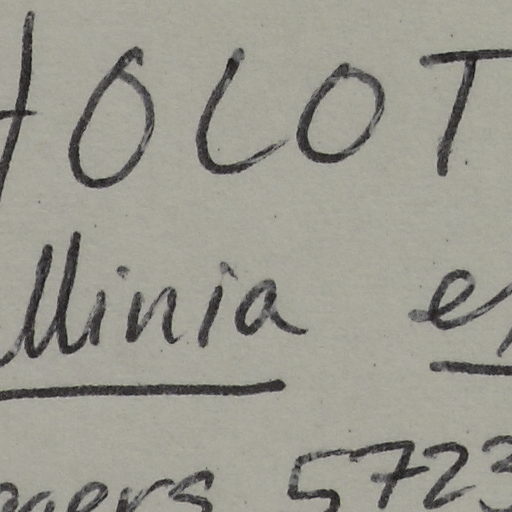 HOLOT
llinia e
gers 5723